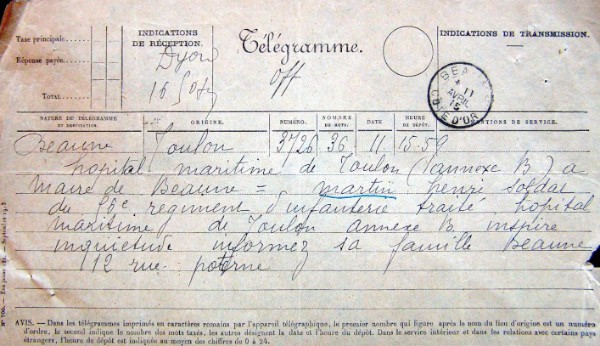 Taxe principale
Réponse payée
TOTAL
INDICATIONS
DE RÉCEPTION.
Dijon
16
Télégramme.
Off
INDICATIONS DE TRANSMISSION.
BEAUNE
11
AVRIL
15
CÔTE D'OR
NATURE DU TÉLÉGRAMME
ET DESTINATION.
ORIGINE.
NUMÉRO.
NOMBRE
DE MOTS.
DATE
HEURE
DE DÉPÔT.
MENTIONS DE SERVICE.
Beaune Toulon 3726 36 11 15-59
hopital maritime de Toulon (annexe B) a
Maire de Beaune = martin henri soldat
du 56e regiment d'infanterie traité hopital
maritime de Toulon annexe B inspire
inquietude informez sa famille Beaune
112 rue poterne
N° 700.
AVIS. — Dans les télégrammes imprimés en caractères romains par l'appareil télégraphique, le premier nombre qui figure après le nom du lieu d'origine est un numéro
d'ordre, le second indique le nombre des mots taxés, les autres désignent la date et l'heure du dépôt. Dans le service intérieur et dans les relations avec certains pays
étrangers, l'heure de dépôt est indiquée au moyen des chiffres de 0 à 24.